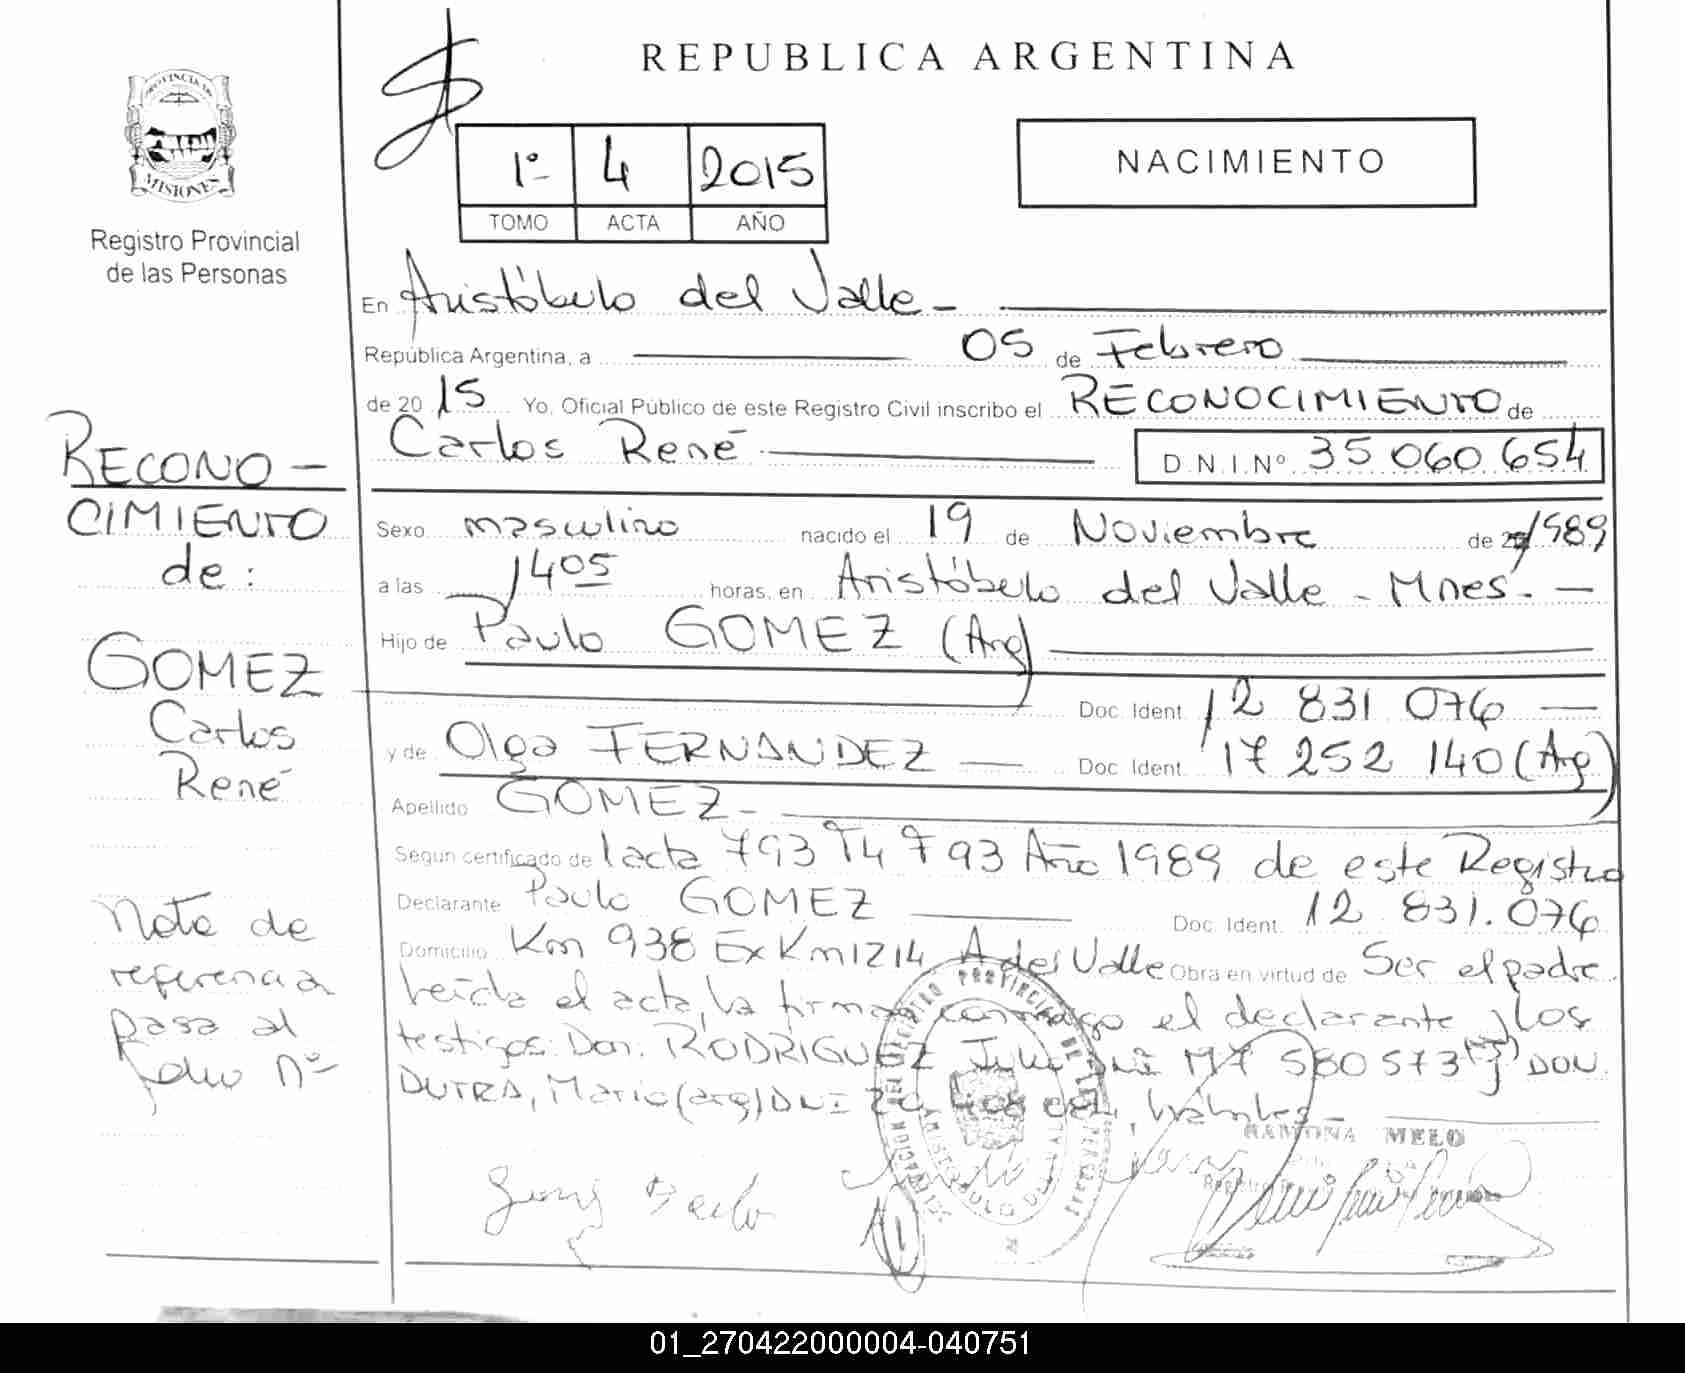 REPUBLICA ARGENTINA
PROVINCIA DE
MISIONES
Registro Provincial
de las Personas
1º 4 2015
TOMO ACTA AÑO
NACIMIENTO
En Aristóbulo del Valle -
República Argentina, a 05 de Febrero
de 2015 Yo, Oficial Público de este Registro Civil inscribo el RECONOCIMIENTO de
Carlos René D.N.I.Nº 35 060 654
Sexo masculino nacido el 19 de Noviembre de 1989
a las 1405 horas, en Aristóbulo del Valle - Mnes. -
Hijo de Paulo GOMEZ (Arg)
Doc. Ident. 12 831 076
y de Olga FERNANDEZ Doc. Ident. 17 252 140 (Arg)
Apellido GOMEZ -
Segun certificado de acta 793 Tº4 Fº 793 Año 1989 de este Registro
Declarante Paulo GOMEZ Doc. Ident. 12 831.076
Domicilio Km 938 Ex Km 1214 A del Valle Obra en virtud de Ser el padre
Leída el acta, la firman conmigo el declarante y los
testigos: Don: RODRIGUEZ Julio DNI M7 580 573 y DON
DUTRA, Mario (arg) DNI
RAMONA MELO
RECONO-
CIMIENTO
de:
GOMEZ
Carlos
René
Nota de
referencia
pasa al
folio Nº
01_270422000004-040751